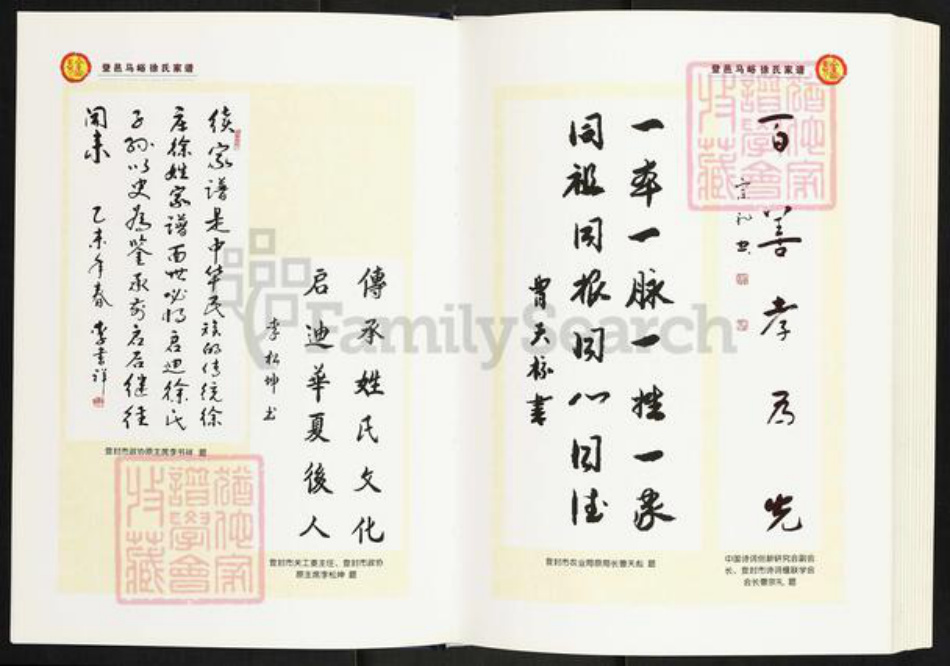 登邑马峪徐氏家谱
续家谱是中华民族的传统徐
庄徐姓家谱面世必将启迪徐氏
子孙以史为鉴承前启后继往
开来 乙未年春 李书祥
登封市政协原主席李书祥 题
傳承姓氏文化
启迪華夏後人
李松坤 书
登封市关工委主任、登封市政协
原主席李松坤 题
登邑马峪徐氏家谱
百善孝为先
宗礼 书
中国诗词创新研究会副会
长、登封市诗词楹联学会
会长曹宗礼 题
一本一脉一姓一家
同祖同根同心同德
曹天彪 書
登封市农业局原局长曹天彪 题
譜學會
收藏
譜學會
收藏
FamilySearch